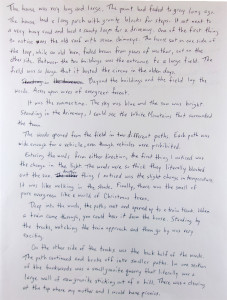 The house was very big and large. The paint had faded to gray long ago.
The house had a long porch with granite blocks for steps. It sat next to
a very busy road and had a sandy loop for a driveway. One of the first things
to notice was the old well with stone chimneys. The house sat on one side of
the loop, while an old barn, faded brown from years of weather, sat on the
other side. Between the two buildings was the entrance to a large field. The
field was so large that it hosted the circus in the olden days.
Beyond the buildings and the field lay the
woods. Many acres of evergreen forest.
It was the summertime. The sky was blue and the sun was bright.
Standing in the driveway, I could see the White Mountains that surrounded
the town.
The woods opened from the field in two different paths. Each path was
wide enough for a vehicle, even though vehicles were prohibited.
Entering the woods from either direction, the first thing I noticed was
the change in the light. The woods were so thick they literally blocked
out the sun. The next thing I noticed was the slight change in temperature.
It was like walking in the shade. Finally, there was the smell of
pure evergreens, like a world of Christmas trees.
Deep into the woods, the paths met and opened up to a train track. When
a train came through, you could hear it from the house. Standing by
the tracks, watching the train approach and then go by was very
exciting.
On the other side of the tracks was the back half of the woods.
The path continued and broke off into smaller paths. In one section
of the backwoods was a small granite quarry that literally was a
large wall of granite sticking out of a hill. There was a clearing
at the top where my mother and I would have picnics.